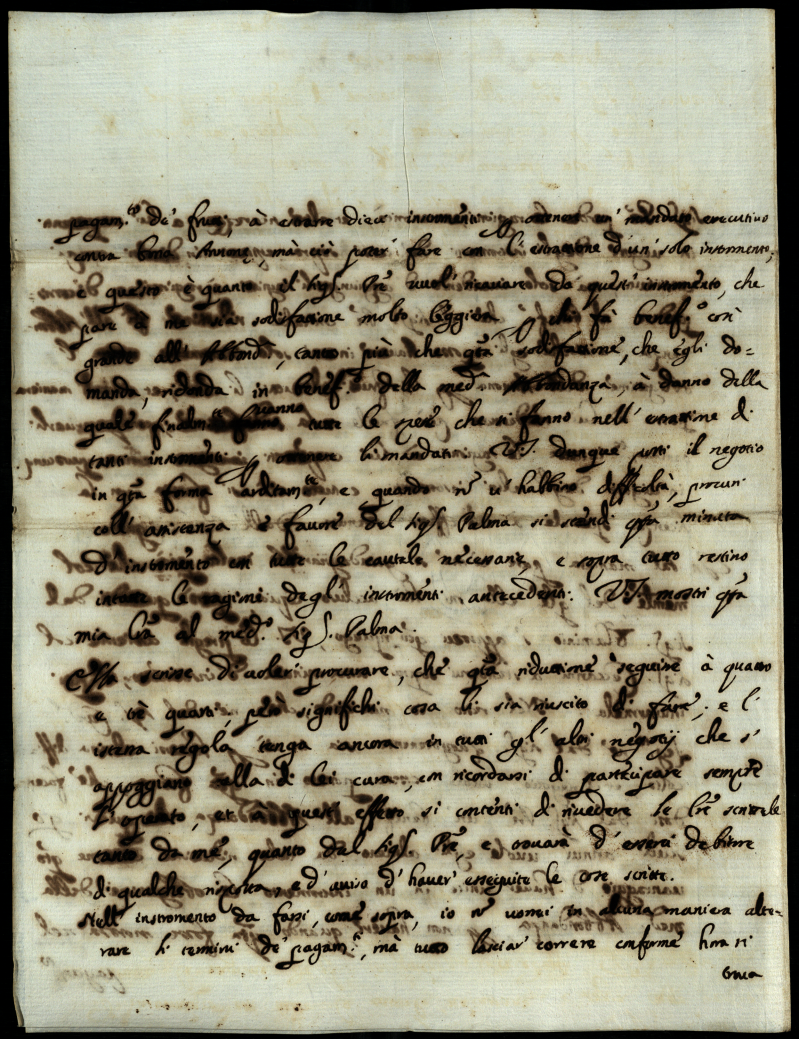 pagam.to de' frutti, à estrarre dieci instromenti p ottener un' mandato executivo
contra, mà ciò poter' fare con l'estrattione d'un' solo instromento,
e questo è quanto il Sigr. Pre vuol' ricavare da questi instromento, che
pare à me una sodisfatione molto leggiera p chi fà benef.o così
grande all' Abbondza, tanto più che qta sodisfatione, che egli do=
manda, ridonda in benef.o della meda Abbondanza, à danno della
quale finalmte vanno tutte le spese, che si fanno nell' estrattione di
tanti instromenti p ottenere li mandati. V.S. dunque porti il negotio
in qta forma arditamte, e quando nè v' habbino difficoltà, procuri
coll' assistenza e favore del Sigr. Palma si stendi qta minuta
d' instromento con tutte le cautele necessarie, e sopra tutto restino
intatte le ragioni degli instromenti antecedenti. V.S. mostri qta
mia lra al med.o Sigr. Palma.
Ella scrisse di voler' procurare, che qta riduttione seguire à quattro
e trè quarti, però significhi cosa li sia riuscito di fare, e l'
istessa regola tenga ancora in tutti gl' altri negotij che s'
appoggiano alla di lei cura, con ricordarsi di participare sempre
l' operato, et à questi effetto si contenti di rivedere le lre scrittele
tanto da me, quanto dal Sigr. Pre, e trovarà d' esserci debitore
di qualche risposta, e d' aviso d' haver' esseguite le cose scritte.
Nell' instromento da farsi, come sopra, io nè vorrei in alcuna maniera alte=
rare li termini de' pagam.ti, mà tutto lasciar' correre conforme hora si
trova